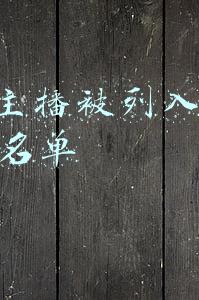 主播被列入
名单